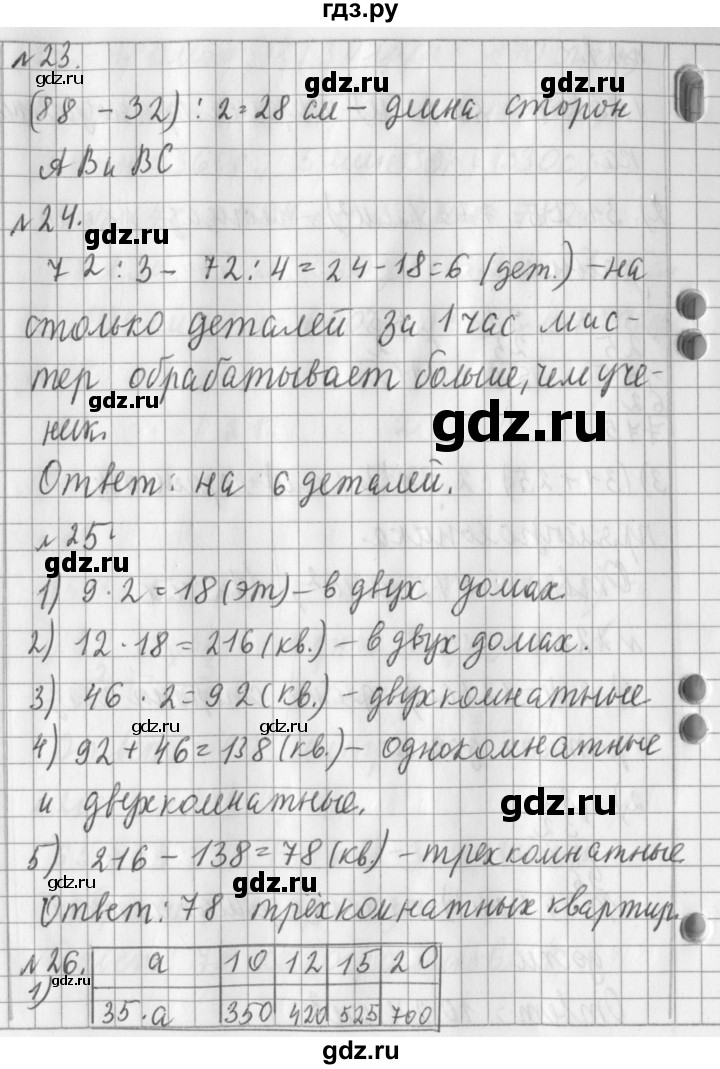 гдз.ру
№23.
gdz.ru
gdz.ru
(88 - 32) : 2 = 28 см - длина сторон
АВ и ВС
№24.
gdz.ru
72 : 3 - 72 : 4 = 24 - 18 = 6 (дет.) - на
столько деталей за 1 час мас-
тер обрабатывает больше, чем уче-
gdz.ru
gdz.ru
ник.
Ответ: на 6 деталей.
№25.
gdz.ru
1) 9 · 2 = 18 (эт) - в двух домах.
2) 12 · 18 = 216 (кв.) - в двух домах.
3) 46 · 2 = 92 (кв.) - двухкомнатные
gdz.ru
gdz.ru
4) 92 + 46 = 138 (кв.) - однокомнатные
и двухкомнатные.
gdz.ru
5) 216 - 138 = 78 (кв.) - трёхкомнатные
gdz.ru
gdz.ru
Ответ: 78 трёхкомнатных квартир.
№26. а 10 12 15 20
gdz.ru
1) 35 · а 350 420 525 700
gdz.ru